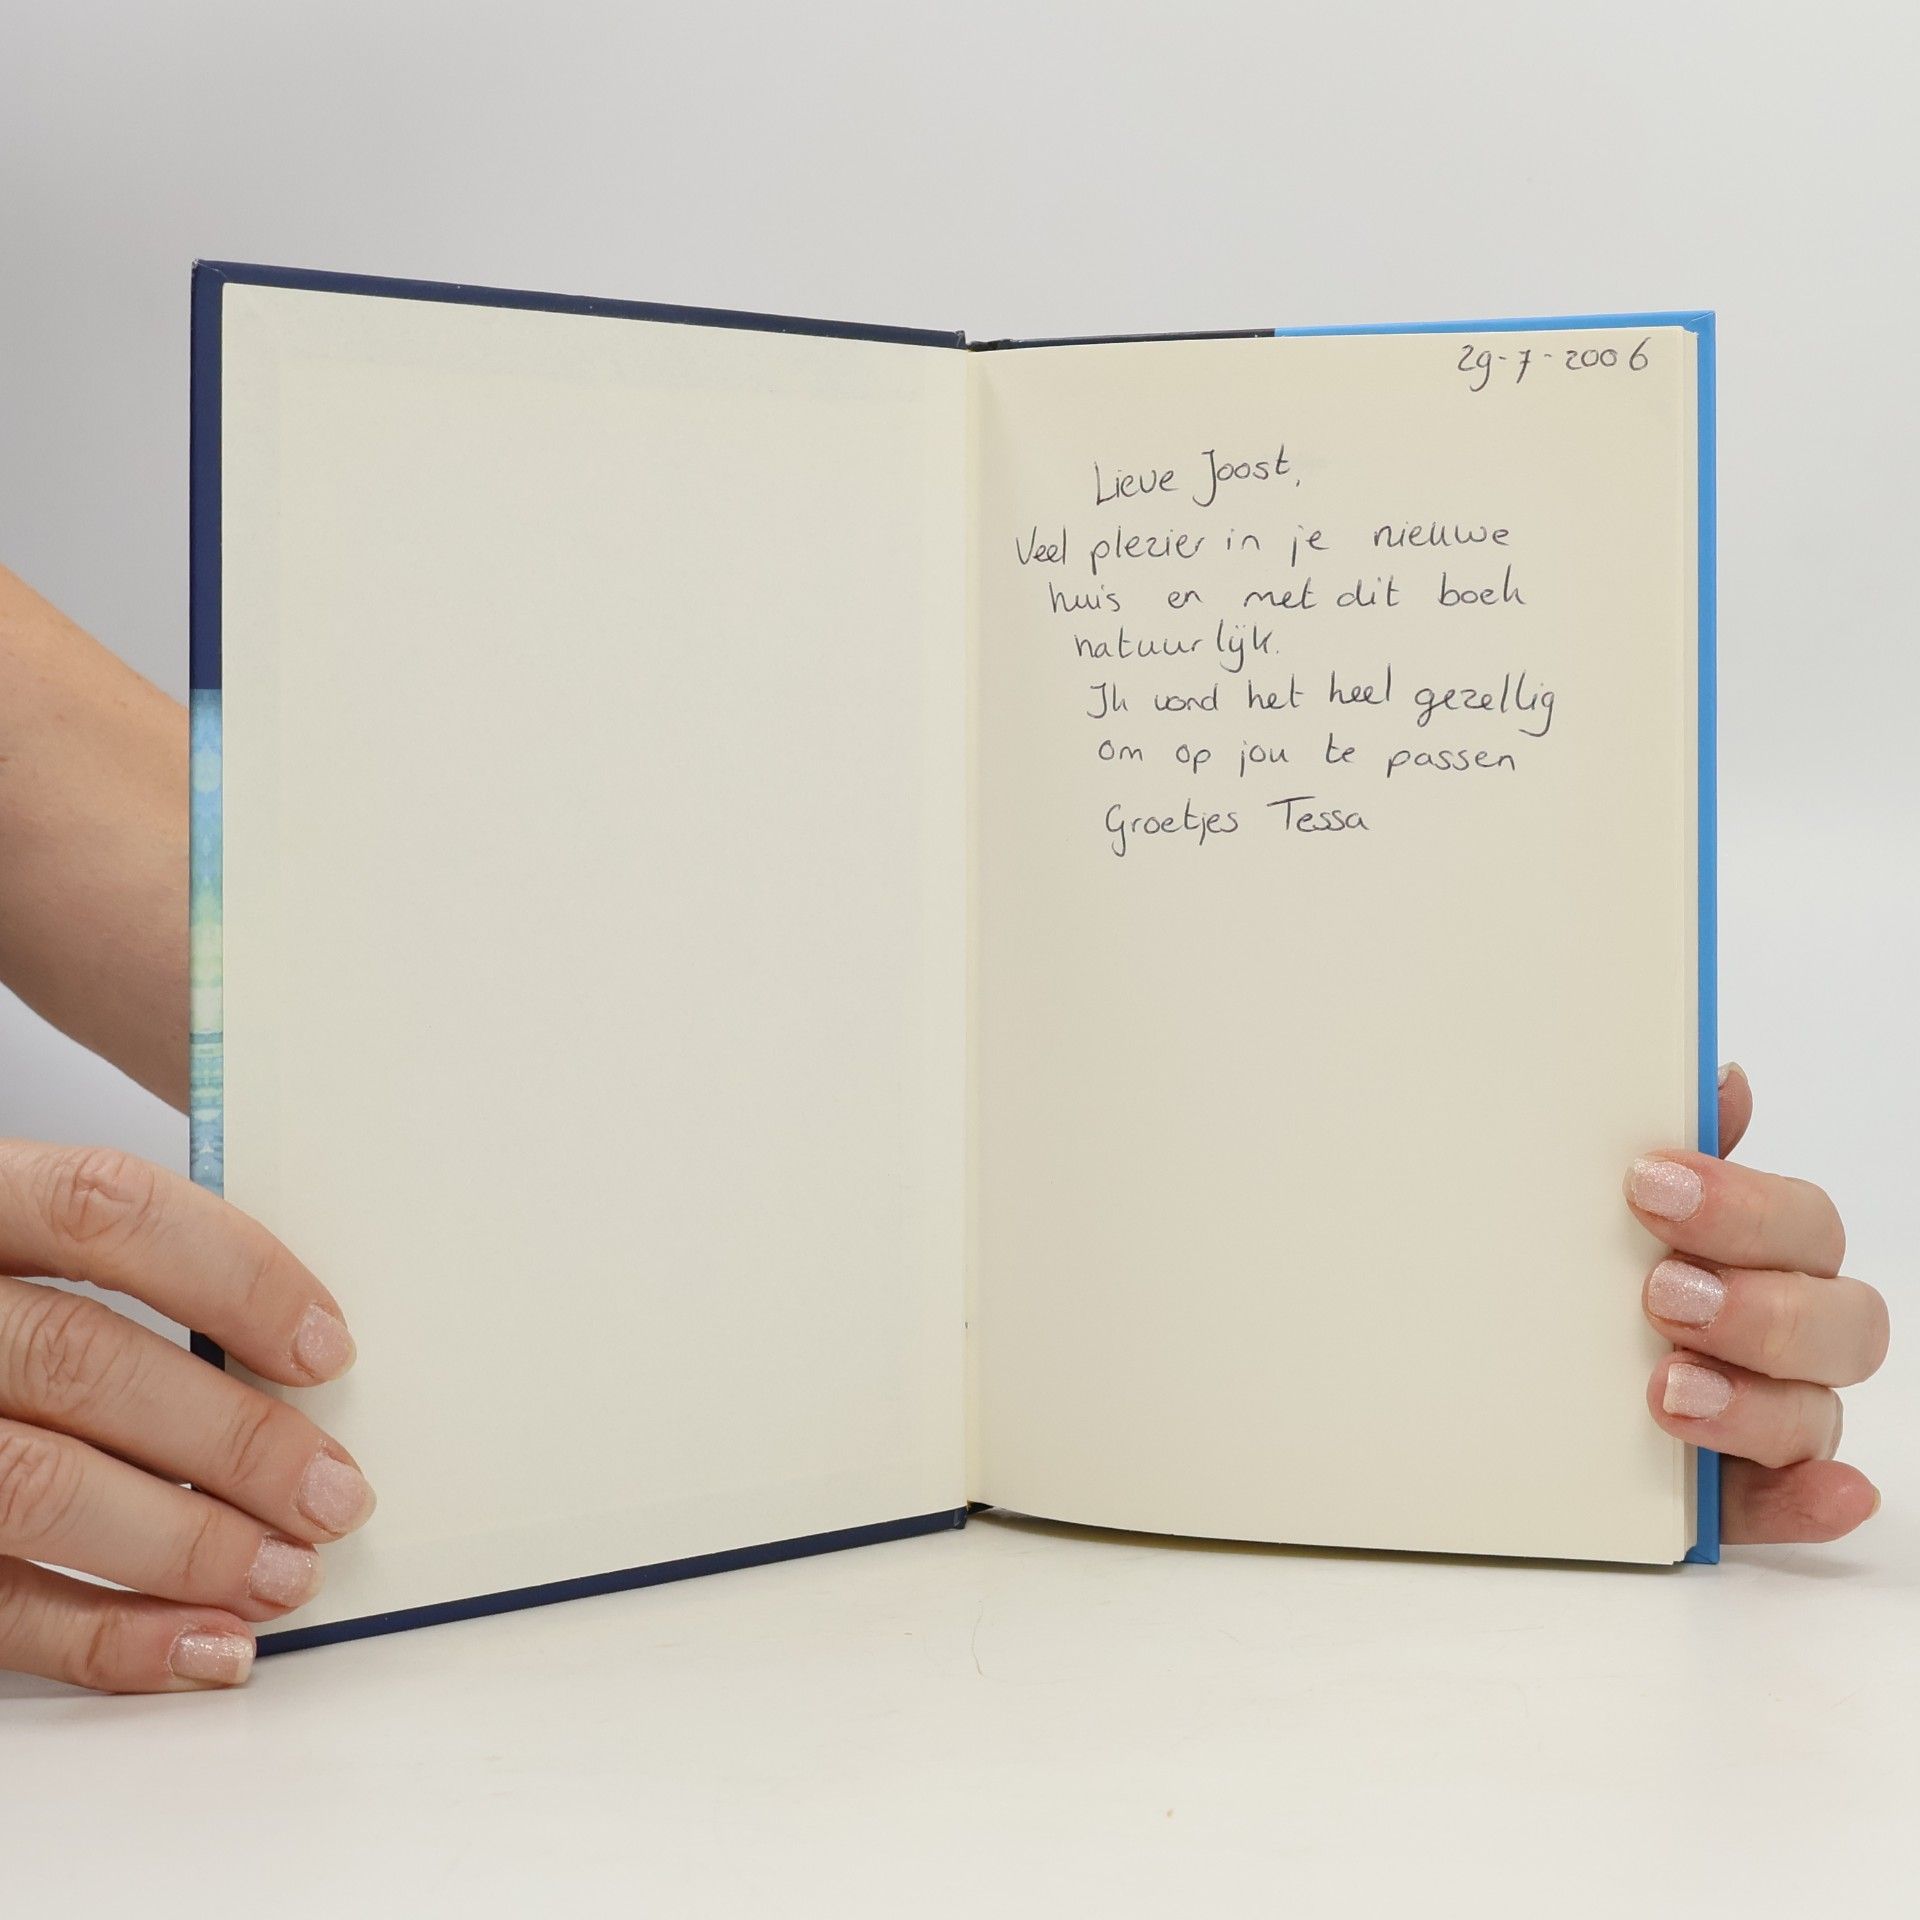 29-7-2006
Lieve Joost,
Veel plezier in je nieuwe
huis en met dit boek
natuurlijk.
Ik vond het heel gezellig
om op jou te passen
Groetjes Tessa